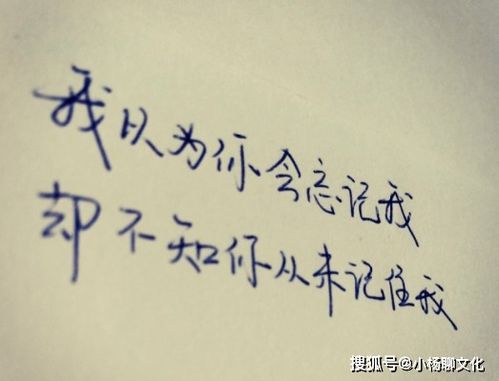 我以为你会忘记我
却不知你从未记住我
搜狐号@小杨聊文化